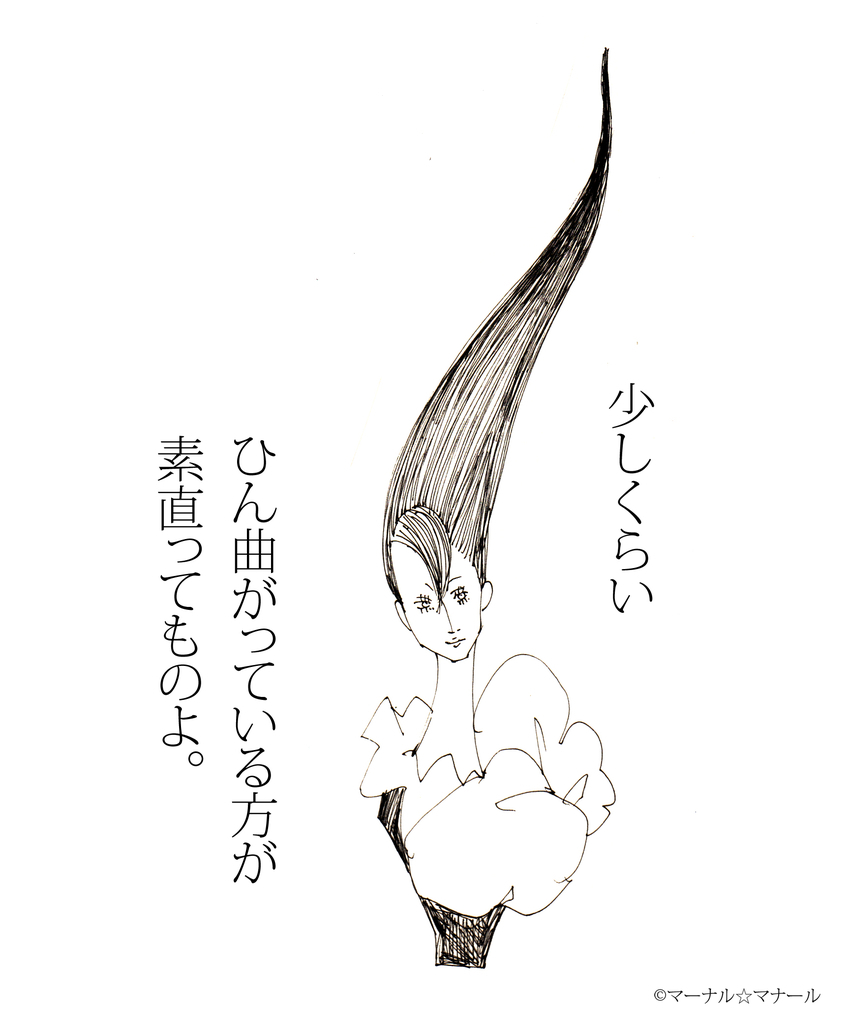 少しくらい
ひん曲がっている方が
素直ってものよ。
©マーナル☆マナール